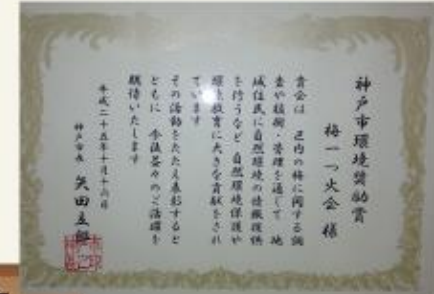 神戸市環境奨励賞
梅一つ火会 様
貴会は 区内の梅に関する調
査や植樹・管理を通じて 地
域住民に自然環境の情報提供
を行うなど 自然環境保護や
環境教育に大きな貢献をされ
ています
その活動をたたえ表彰すると
ともに 今後益々のご活躍を
期待いたします
平成二十五年十月十六日
神戸市長 矢田立郎